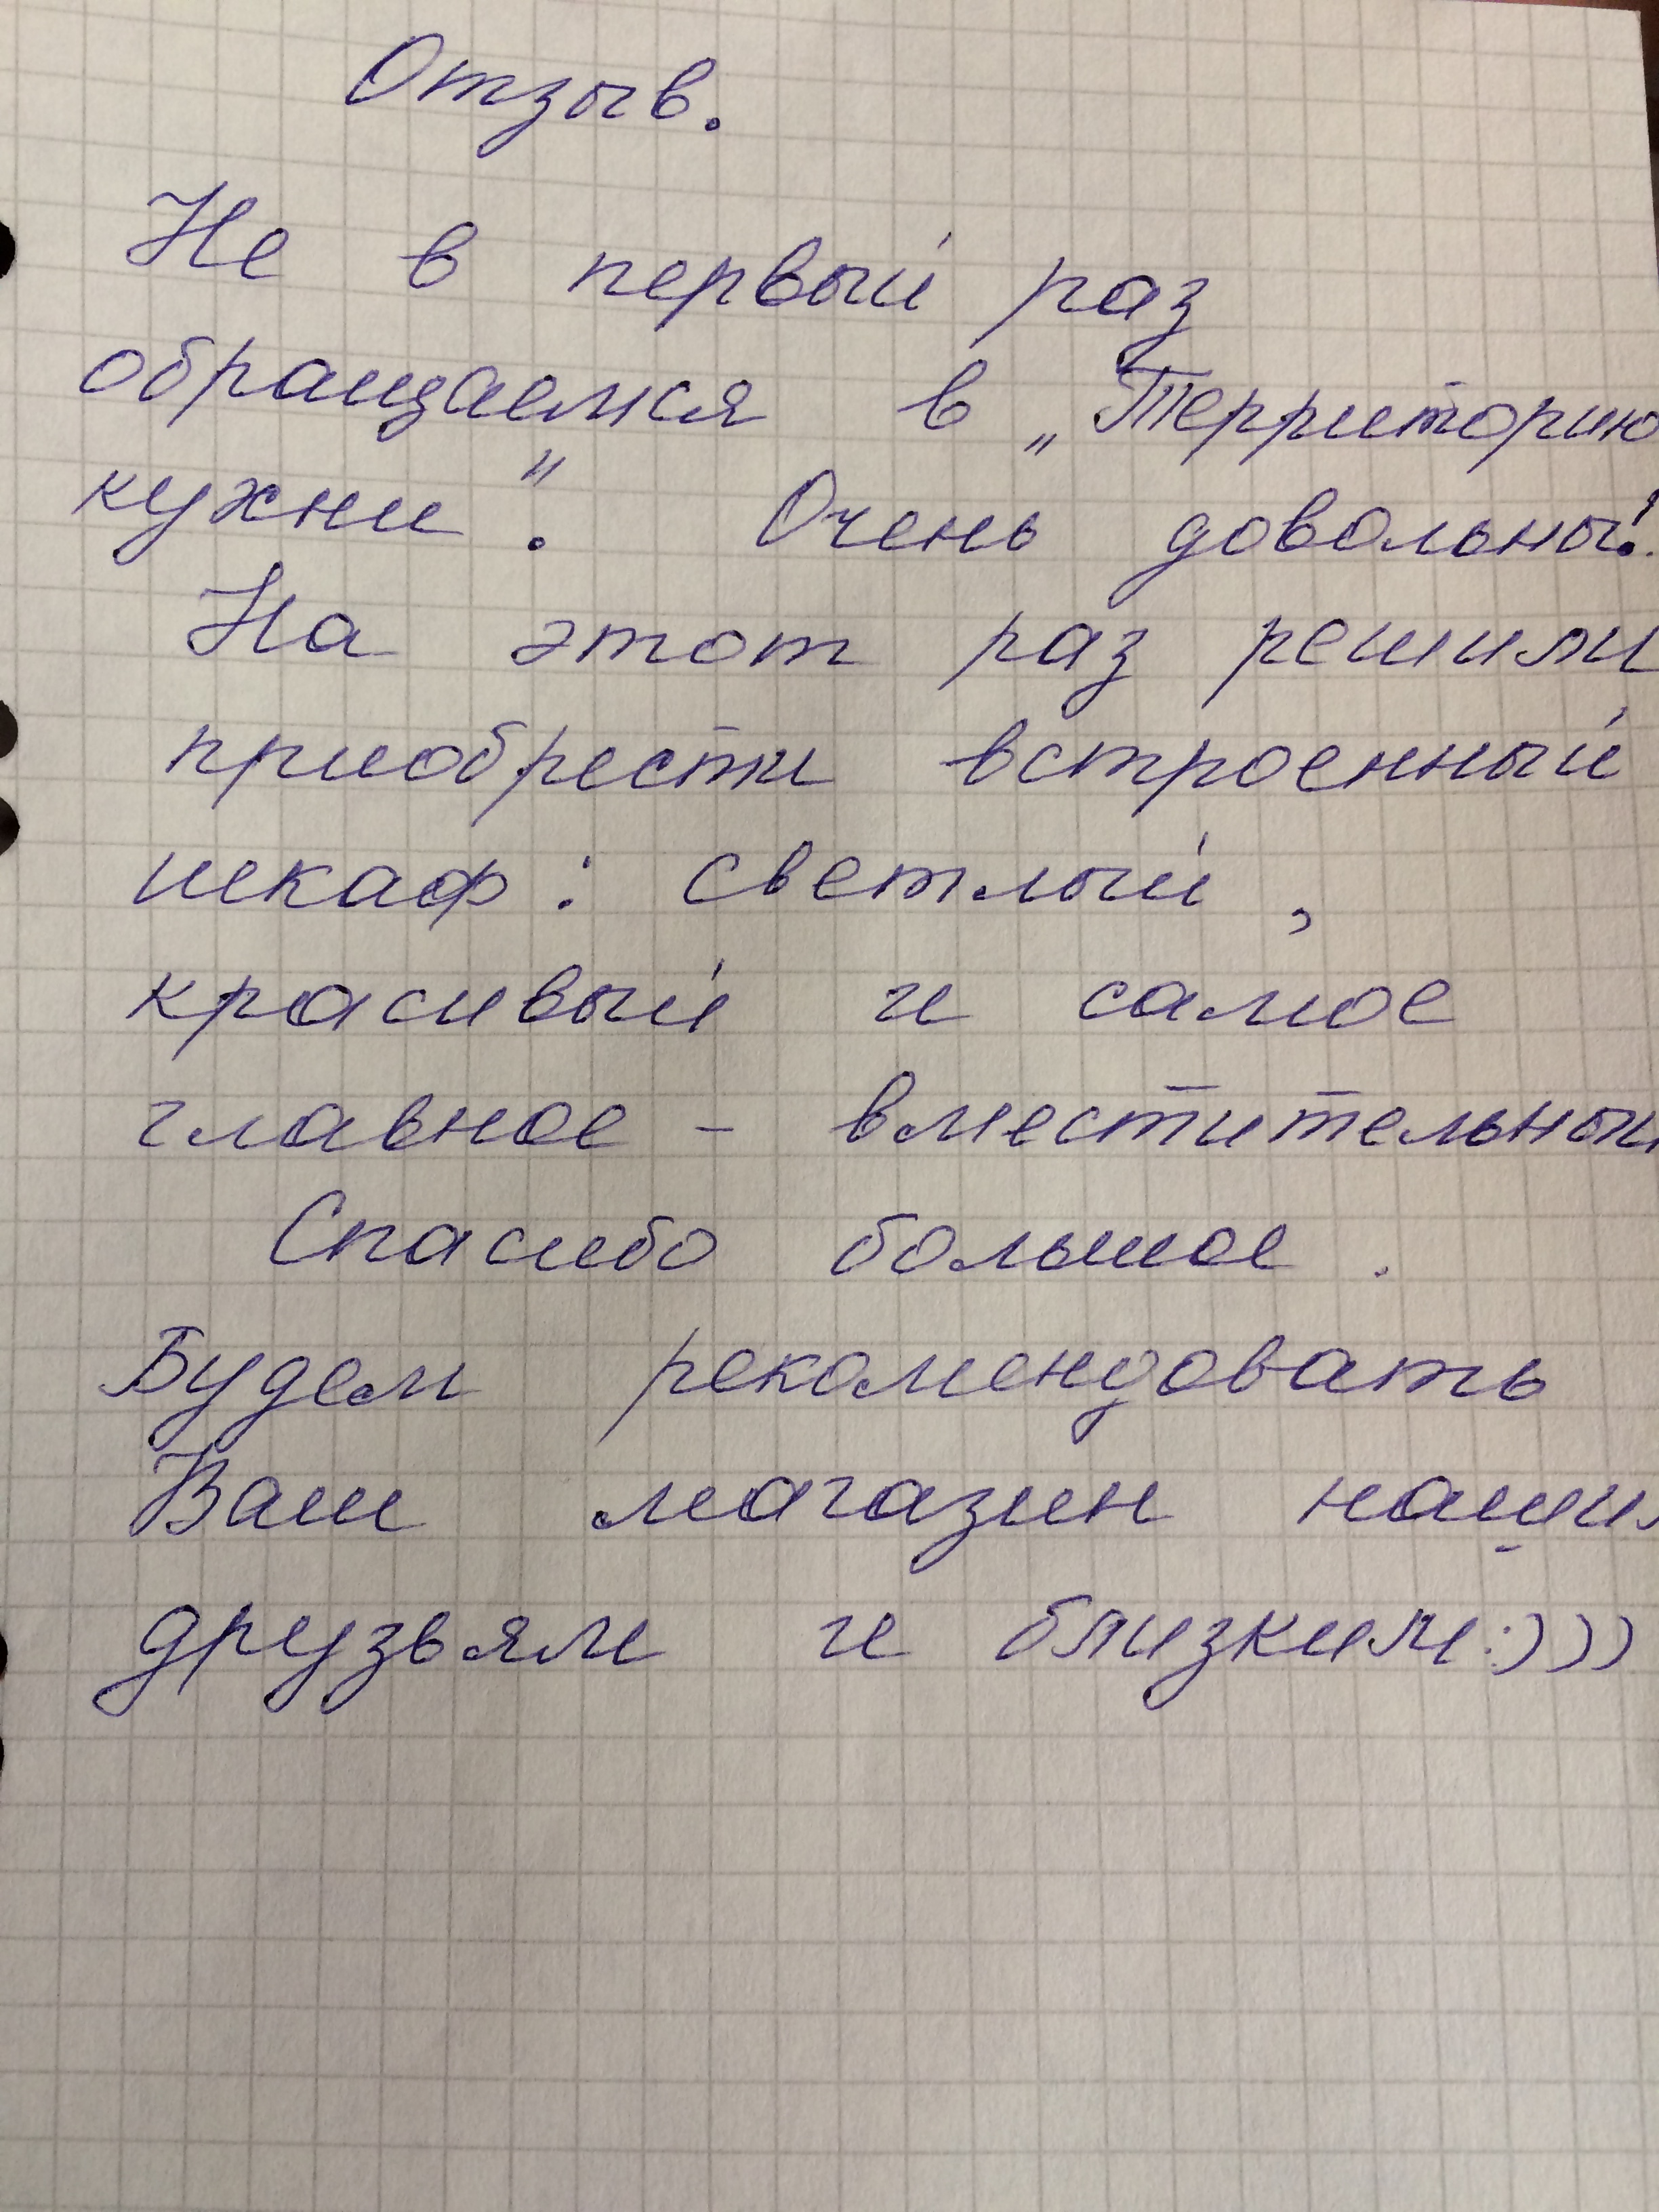 Отзыв.
Не в первый раз
обращаемся в „Территорию
кухни". Очень довольны!
На этот раз решили
приобрести встроенный
шкаф: светлый,
красивый и самое
главное - вместительный
Спасибо большое.
Будем рекомендовать
Ваш магазин нашим
друзьям и близким:)))